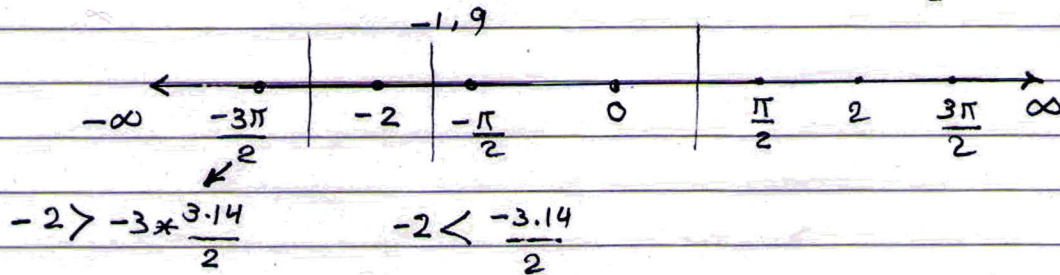 -1,9
-∞ -3π/2 -2 -π/2 0 π/2 2 3π/2 ∞
-2 > -3*3.14/2 -2 < -3.14/2